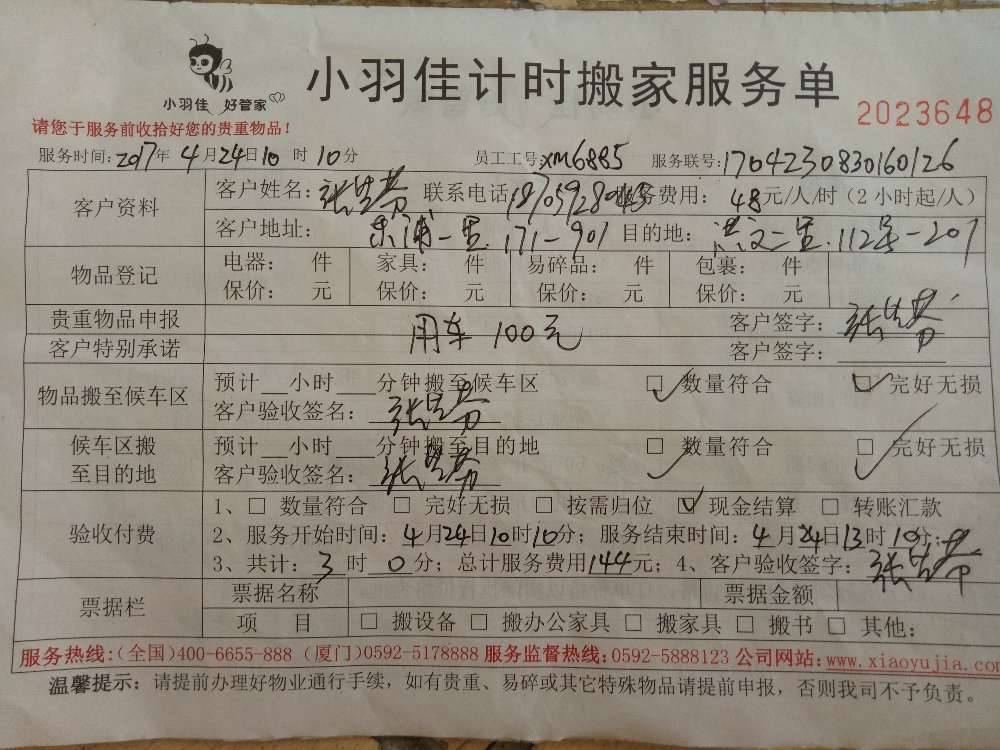 小羽佳 好管家
小羽佳计时搬家服务单
2023648
请您于服务前收拾好您的贵重物品！
服务时间：2017年 4月24日10时10分 员工工号：XM6885 服务联号：1704230830160126
客户资料 客户姓名： 联系电话 服务费用：48元/人/时（2小时起/人）
客户地址：东浦一里.171-901 目的地：洪文二里.112号-207
物品登记 电器： 件 家具： 件 易碎品： 件 包裹： 件
保价： 元 保价： 元 保价： 元 保价： 元
贵重物品申报 用车 100元 客户签字：
客户特别承诺 客户签字：
物品搬至候车区 预计__小时___分钟搬至候车区 数量符合 完好无损
客户验收签名：
候车区搬至目的地 预计__小时___分钟搬至目的地 数量符合 完好无损
客户验收签名：
验收付费 1、□ 数量符合 □ 完好无损 □ 按需归位 ☑ 现金结算 □ 转账汇款
2、服务开始时间：4月24日10时10分；服务结束时间：4月24日13时10分；
3、共计：3时0分；总计服务费用144元；4、客户验收签字：
票据栏 票据名称 票据金额
项 目 □ 搬设备 □ 搬办公家具 □ 搬家具 □ 搬书 □ 其他：
服务热线:(全国)400-6655-888 (厦门)0592-5178888 服务监督热线:0592-5888123 公司网站:www.xiaoyujia.com
温馨提示：请提前办理好物业通行手续，如有贵重、易碎或其它特殊物品请提前申报，否则我司不予负责。